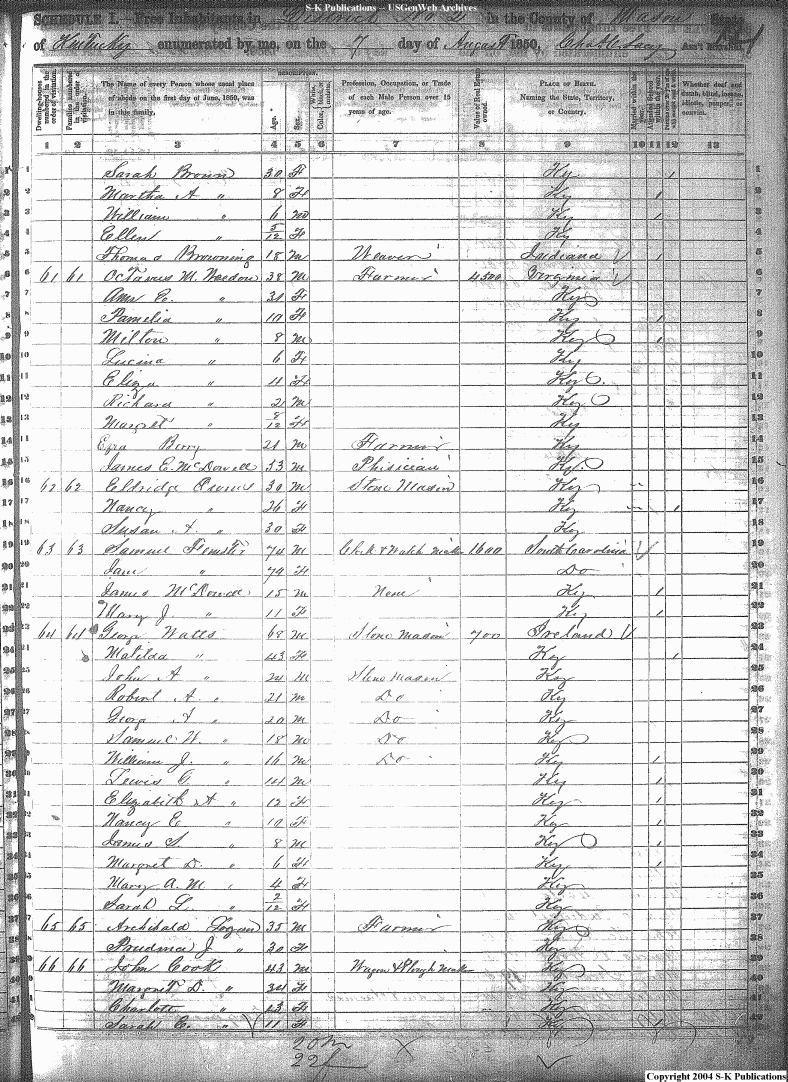 S-K Publications -- USGenWeb Archives
SCHEDULE I. Free Inhabitants in District No. 2 in the County of Mason State
of Kentucky enumerated by me, on the 7 day of August 1850, Ass't Marshal.
DESCRIPTION.
Dwelling-houses numbered in the order of visitation.
Families numbered in the order of visitation.
The Name of every Person whose usual place of abode on the first day of June, 1850, was in this family.
Age.
Sex.
Color, White, black, or mulatto.
Profession, Occupation, or Trade of each Male Person over 15 years of age.
Value of Real Estate owned.
PLACE OF BIRTH. Naming the State, Territory, or Country.
Married within the year.
Whether deaf and dumb, blind, insane, idiotic, pauper, or convict.
1 2 3 4 5 6 7 8 9 10 11 12 13
1 Sarah Brown 30 F Ky / 1
2 Martha A " 8 F Ky / 2
3 William " 6 m Ky / 3
4 Ellen " 5/12 F Ky 4
5 Thomas Browning 18 m Weaver Indiana / 5
6 61 61 Octavus M. Weedon 38 m Farmer 4500 Virginia 6
7 Ann E. " 31 F Ky 7
8 Pamelia " 10 F Ky / 8
9 Milton " 8 m Ky / 9
10 Lucina " 6 F Ky 10
11 Eliza " 4 F Ky 11
12 Richard " 2 m Ky 12
13 Margret " 8/12 F Ky 13
14 Ezra Berry 21 m Farmer Ky 14
15 James E. McDowell 33 m Phisician Ky 15
16 62 62 Eldridge 30 m Stone Mason Ky " 16
17 Nancy " 26 F Ky " / 17
18 Susan A. " 30 F Ky 18
19 63 63 Samuel Femster 74 m Clock & Watch Maker 1600 South Carolina 19
20 Jane " 74 F Do 20
21 James McDowell 15 m None Ky / 21
22 Mary J. " 11 F Ky / 22
23 64 64 Georg Watts 68 m Stone Mason 700 Ireland 23
24 Matilda " 43 F Ky / 24
25 John A " 24 m Stone Mason Ky 25
26 Robert A. " 21 m Do Ky 26
27 Georg A " 20 m Do Ky 27
28 Samuel H. " 18 m Do Ky 28
29 William J. " 16 m Do Ky / 29
30 Lewis G. " 14 m Ky / 30
31 Elizabeth A " 12 F Ky / 31
32 Nancy E " 10 F Ky / 32
33 James S. " 8 m Ky / 33
34 Margret D. " 6 F Ky / 34
35 Mary A. M. " 4 F Ky 35
36 Sarah L. " 2/12 F Ky 36
37 65 65 Archibald Logan 35 m Farmer Ky 37
38 Prudence J " 30 F Ky 38
39 66 66 John Cook 43 m Wagon & Plough Maker Ky 39
40 Margret D. " 34 F Ky 40
41 Charlott " 13 F Ky 41
42 Sarah E. " 11 F Ky / 42
20 m
22 f
Copyright 2004 S-K Publications